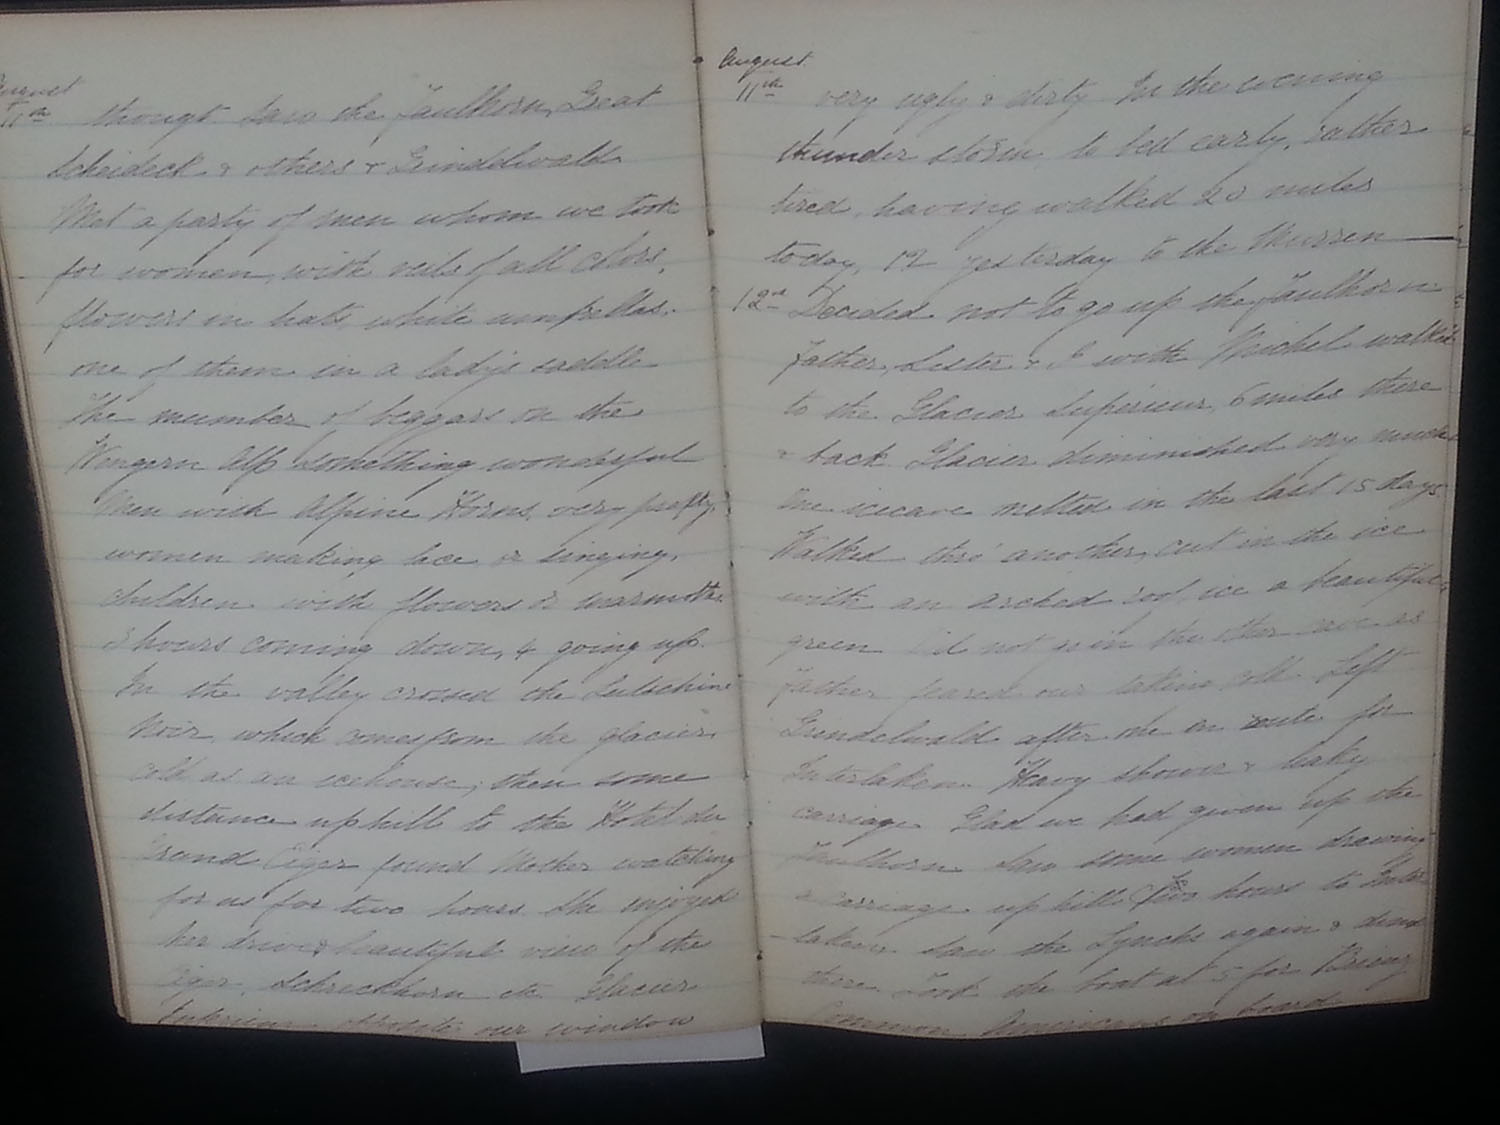 August
11th though saw the Faulhorn, Great
Scheideck & others & Grindelwald
Met a party of men whom we took
for women, with veils of all colors,
flowers in hats, white umbrellas.
one of them in a lady's saddle
The mumber of beggars on the
Wengern Alp something wonderful
Men with Alpine Horns, very pretty,
women making lace or singing,
children with flowers or marmotts.
3 hours coming down, 4 going up.
In the valley crossed the Lutschine
Noir, which comes from the glacier,
cold as an icehouse; then some
distance up hill to the Hotel du
Grand Eiger found Mother watching
for us for two hours. She enjoyed
her drive & beautiful view of the
Eiger, Schreckhorn etc Glacier
our window
August
11th very ugly & dirty In the evening
thunder storm to bed early, rather
tired, having walked 20 miles
today, 12 yesterday to the Murren
12th Decided not to go up the Faulhorn
Father, Lester & I with Michel walked
to the Glacier Supérieur, 6 miles there
& back. Glacier diminished very much
One icecave melted in the last 15 days
Walked thro' another, cut in the ice
with an arched roof, ice a beautiful
green Did not go in the other cave as
Father feared our taking cold. Left
Grindelwald after one en route for
Interlaken. Heavy shower & leaky
carriage Glad we had given up the
Faulhorn Saw some women drawing
a carriage up hill Two hours to Inter
laken, Saw the Lynchs again & dined
there Took the boat at 5 for Brienz
Common Americans on board